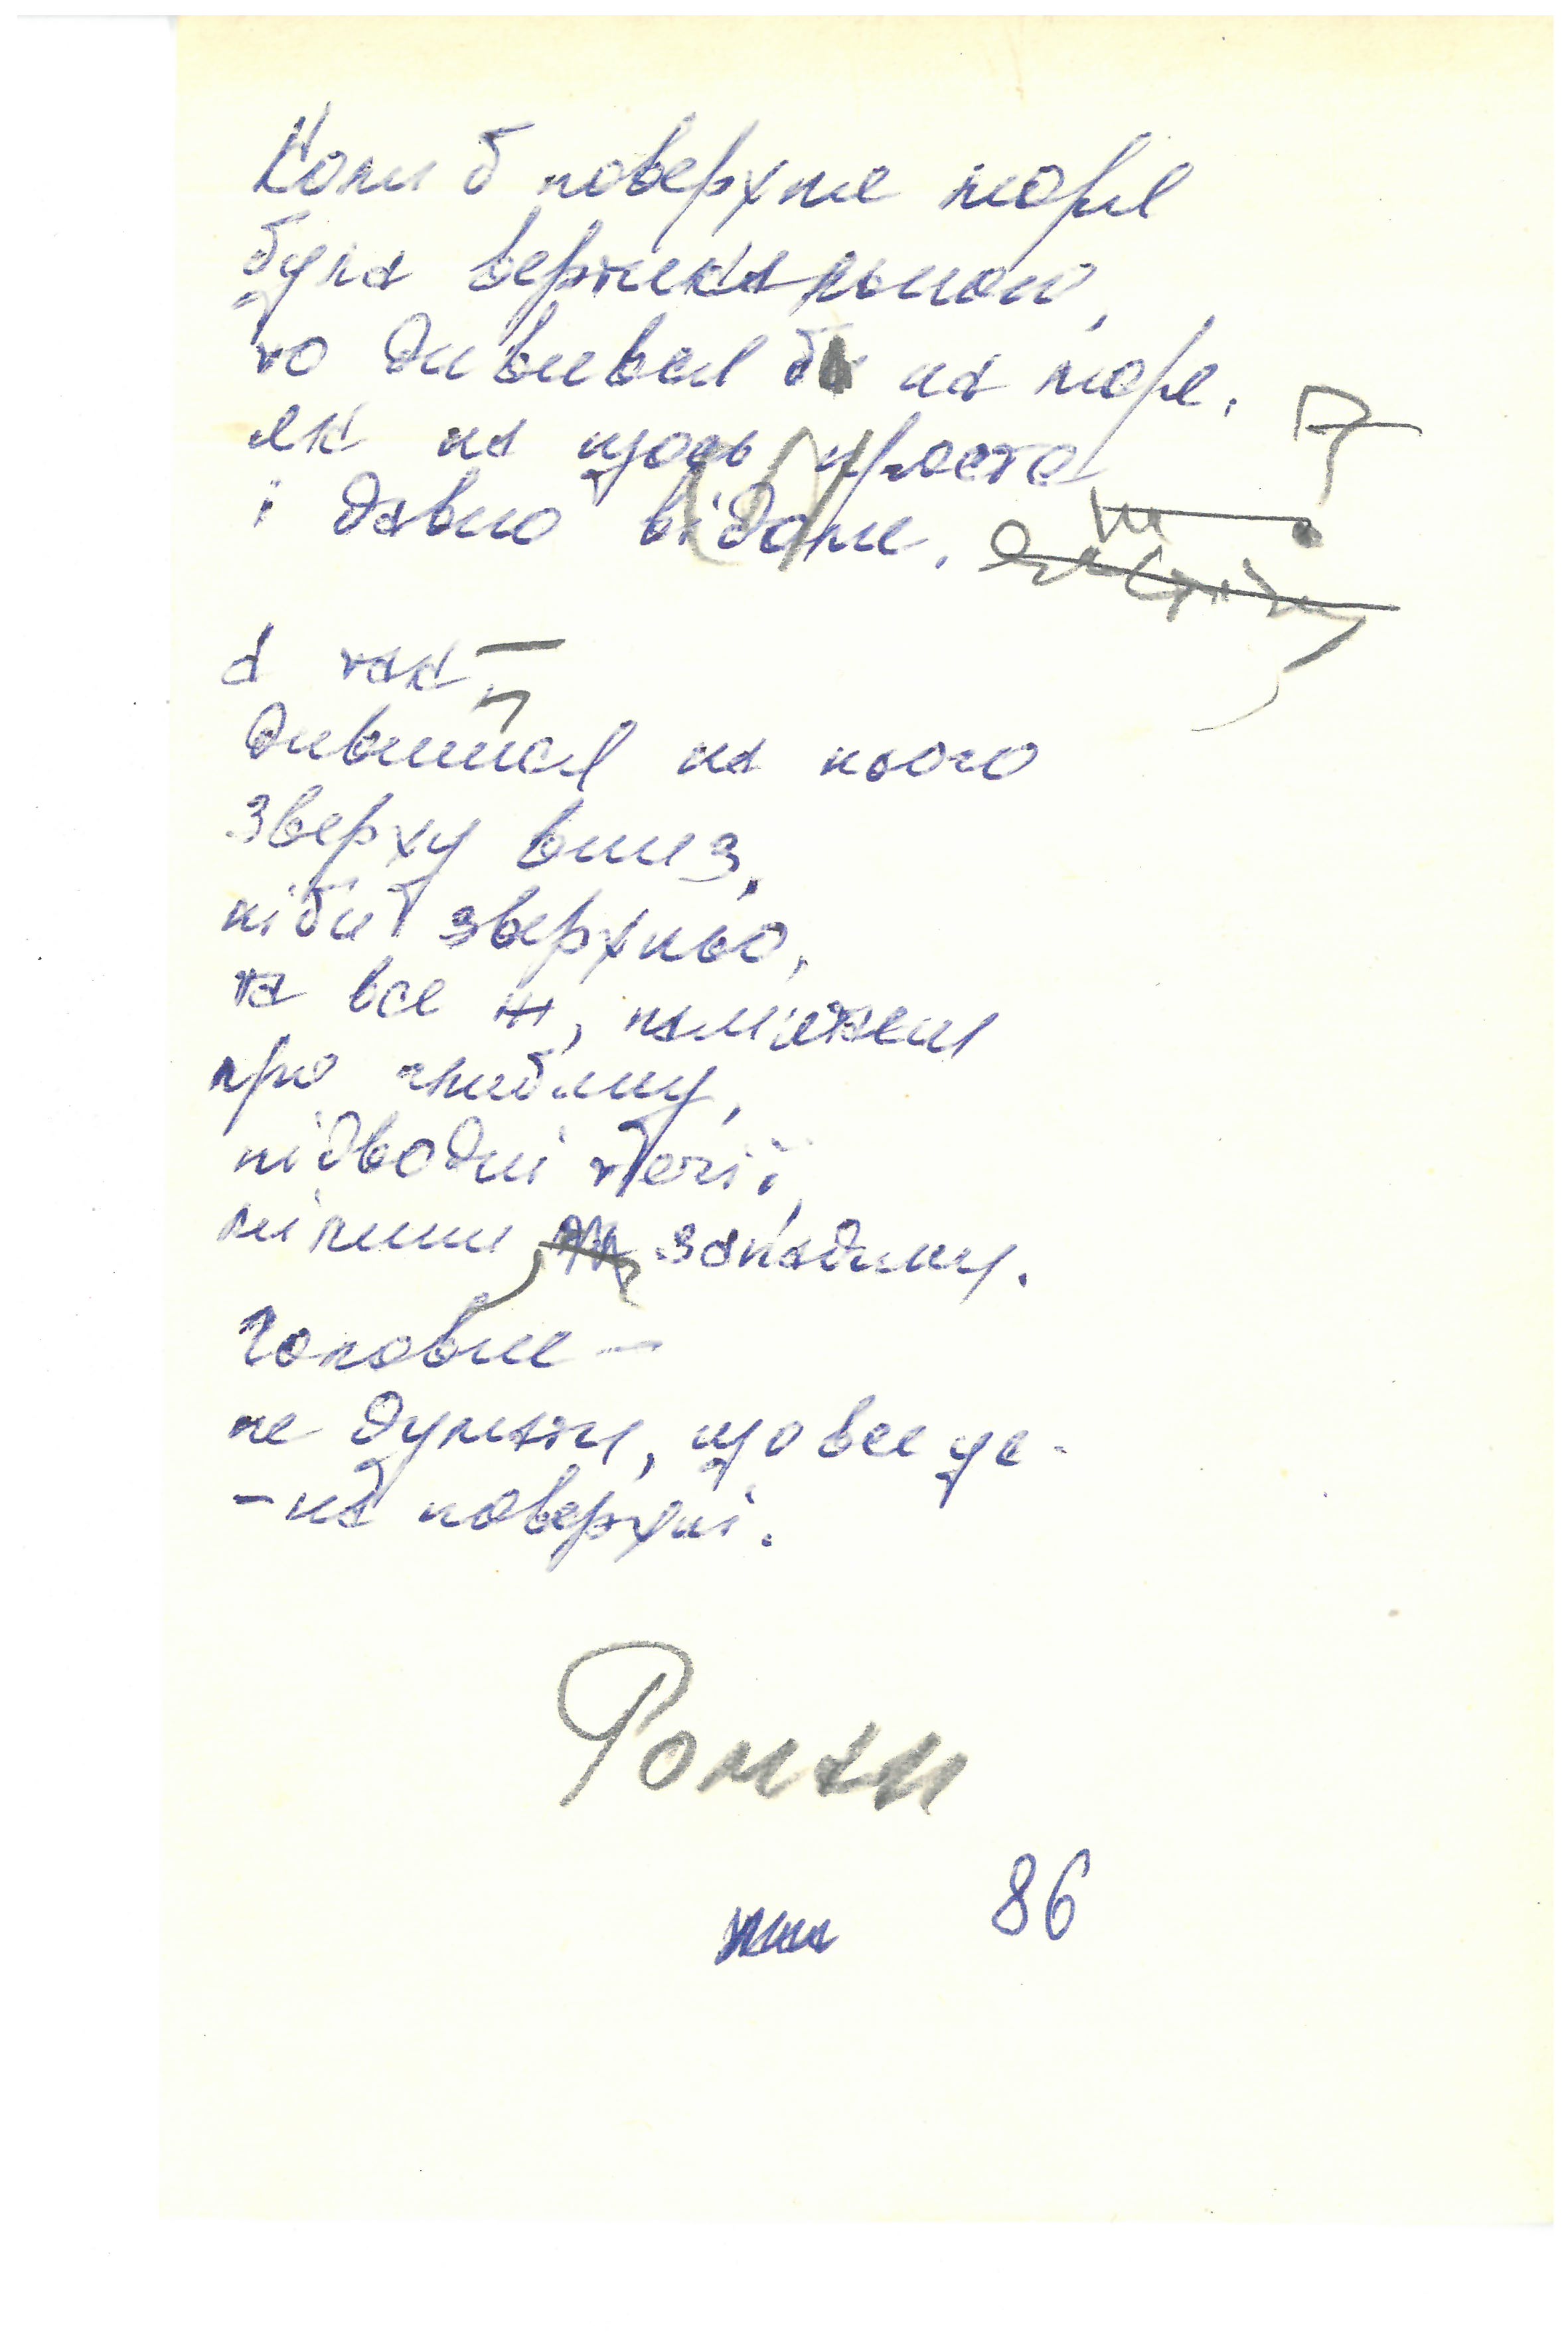 Коли б поверхня моря
була вертикальною,
то дививсь б на море,
як на щось просте
і давно відоме.
А так –
дивишся на нього
зверху вниз,
ніби зверхньо,
та все ж, пам'ятаєш
про глибину,
підводні течії,
мілини, западини.
Головне –
не думати, що все це –
– на поверхні.
Роман
86